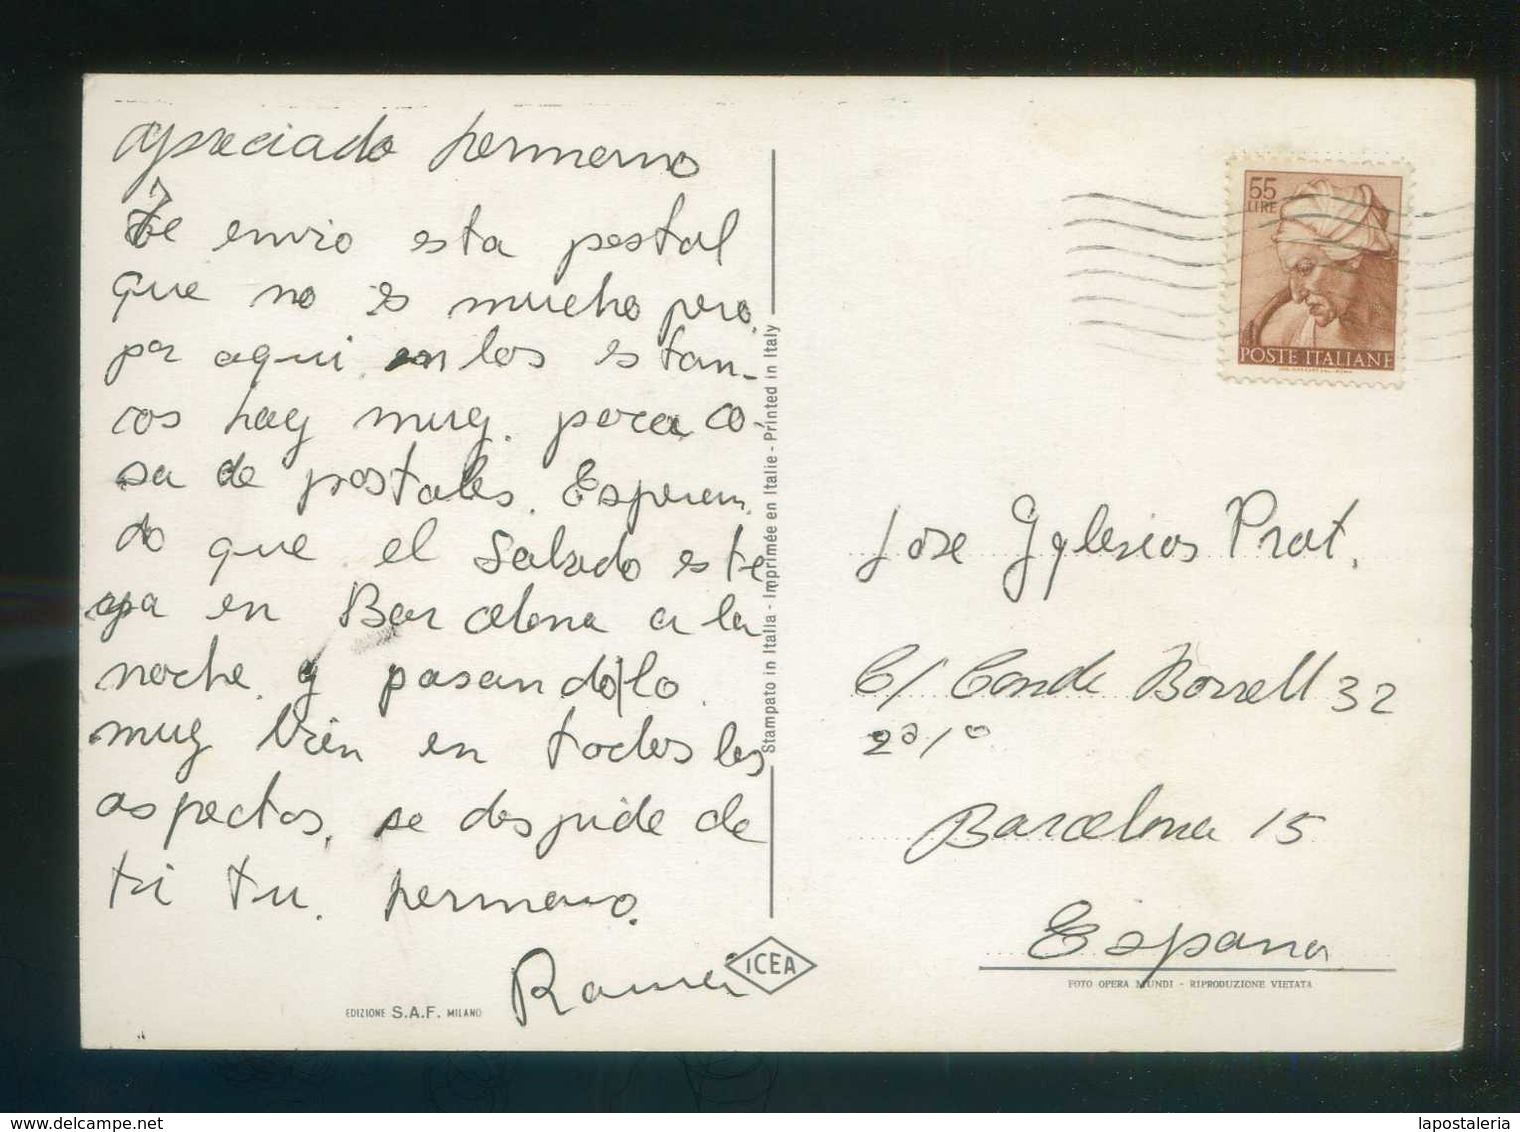 apreciado hermano
Te envio esta postal
que no es mucho pero
por aqui en los estan-
cos hay muy poca co-
sa de postales. Esperan
do que el Sabado este
ya en Barcelona a la
noche y pasandolo
muy bien en todos los
aspectos, se despide de
ti tu hermano.
Ramon
EDIZIONE S.A.F. MILANO
Stampato in Italia - Imprimée en Italie - Printed in Italy
ICEA
55
LIRE
POSTE ITALIANE
Jose Yglesias Prat.
C/ Conde Borrell 32
2º 1º
Barcelona 15
España
FOTO OPERA MUNDI - RIPRODUZIONE VIETATA
lapostaleria